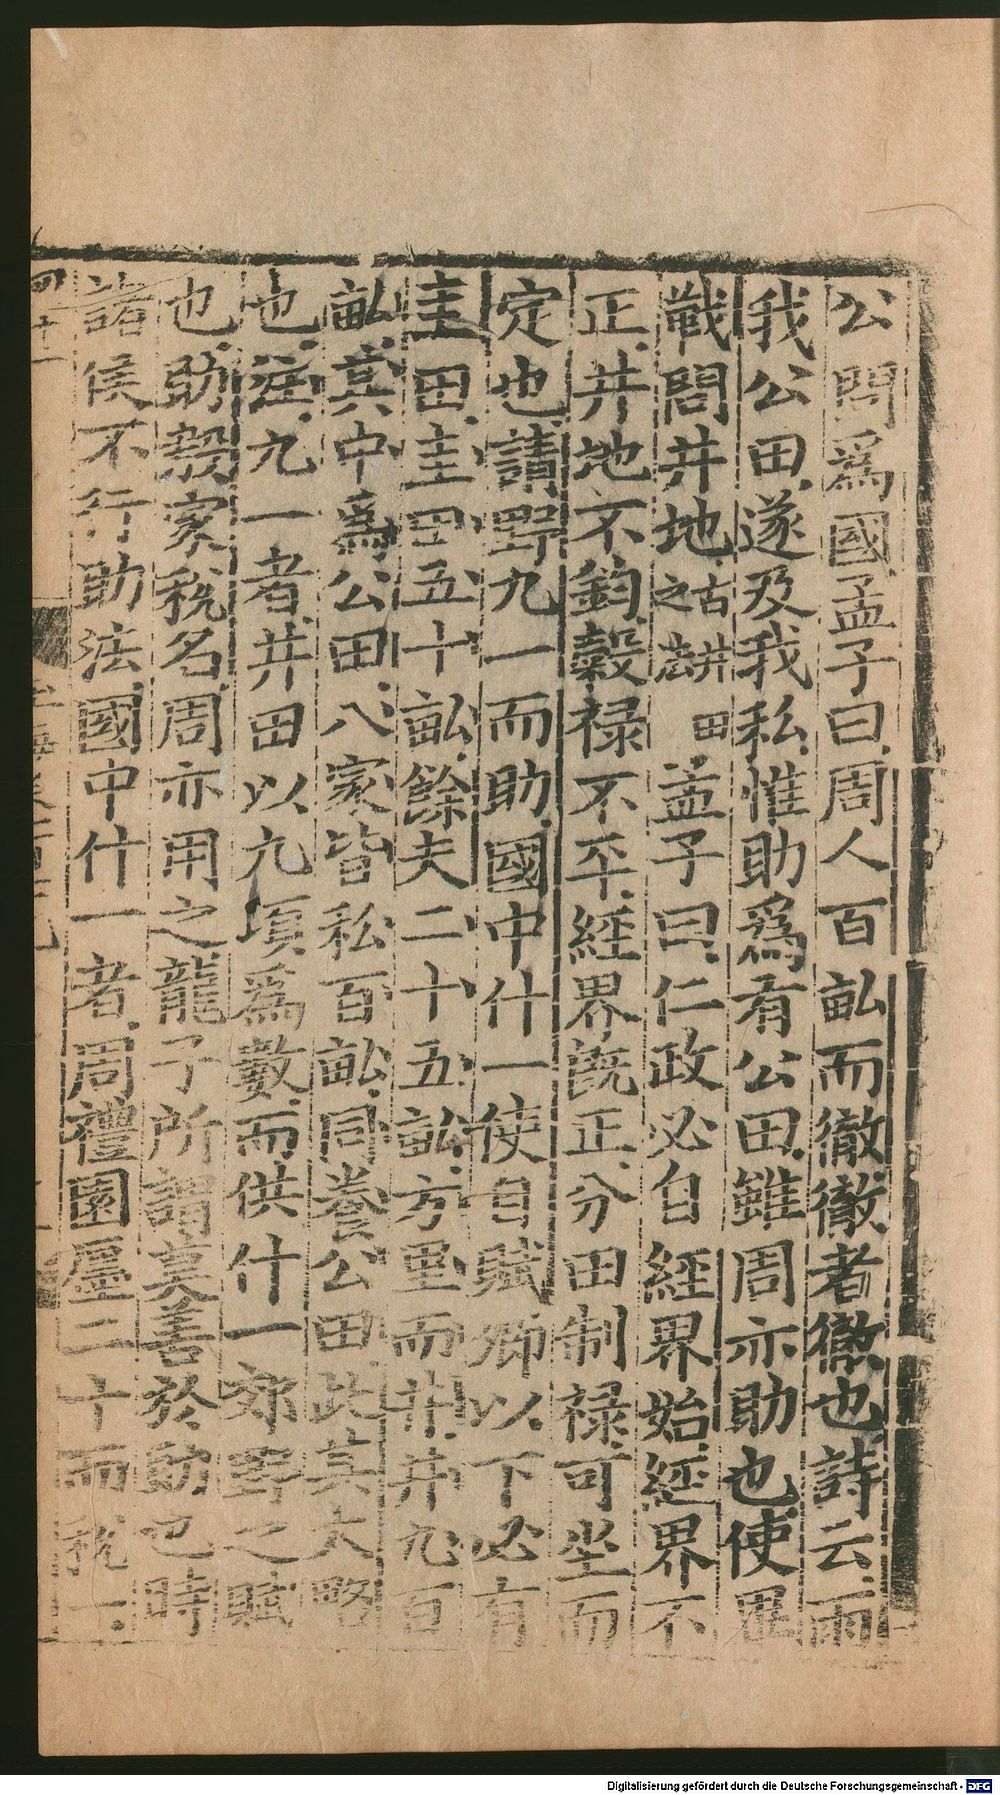 公問爲國孟子曰周人百畆而徹徹者徹也詩云雨
我公田遂及我私惟助爲有公田雖周亦助也使畢
戰問井地古井田之法孟子曰仁政必自經界始經界不
正井地不鈞穀禄不平經界旣正分田制禄可坐而
定也請野九一而助國中什一使自賦卿以下必有
圭田圭田五十畆餘夫二十五畆方里而井井九百
畆其中爲公田八家皆私百畆同養公田此其大略
也注九一者井田以九頃爲數而供什一郊野之賦
也助殷家稅名周亦用之龍子所謂莫善於助也時
諸侯不行助法國中什一者周禮園廛二十而稅一
Digitalisierung gefördert durch die Deutsche Forschungsgemeinschaft - DFG